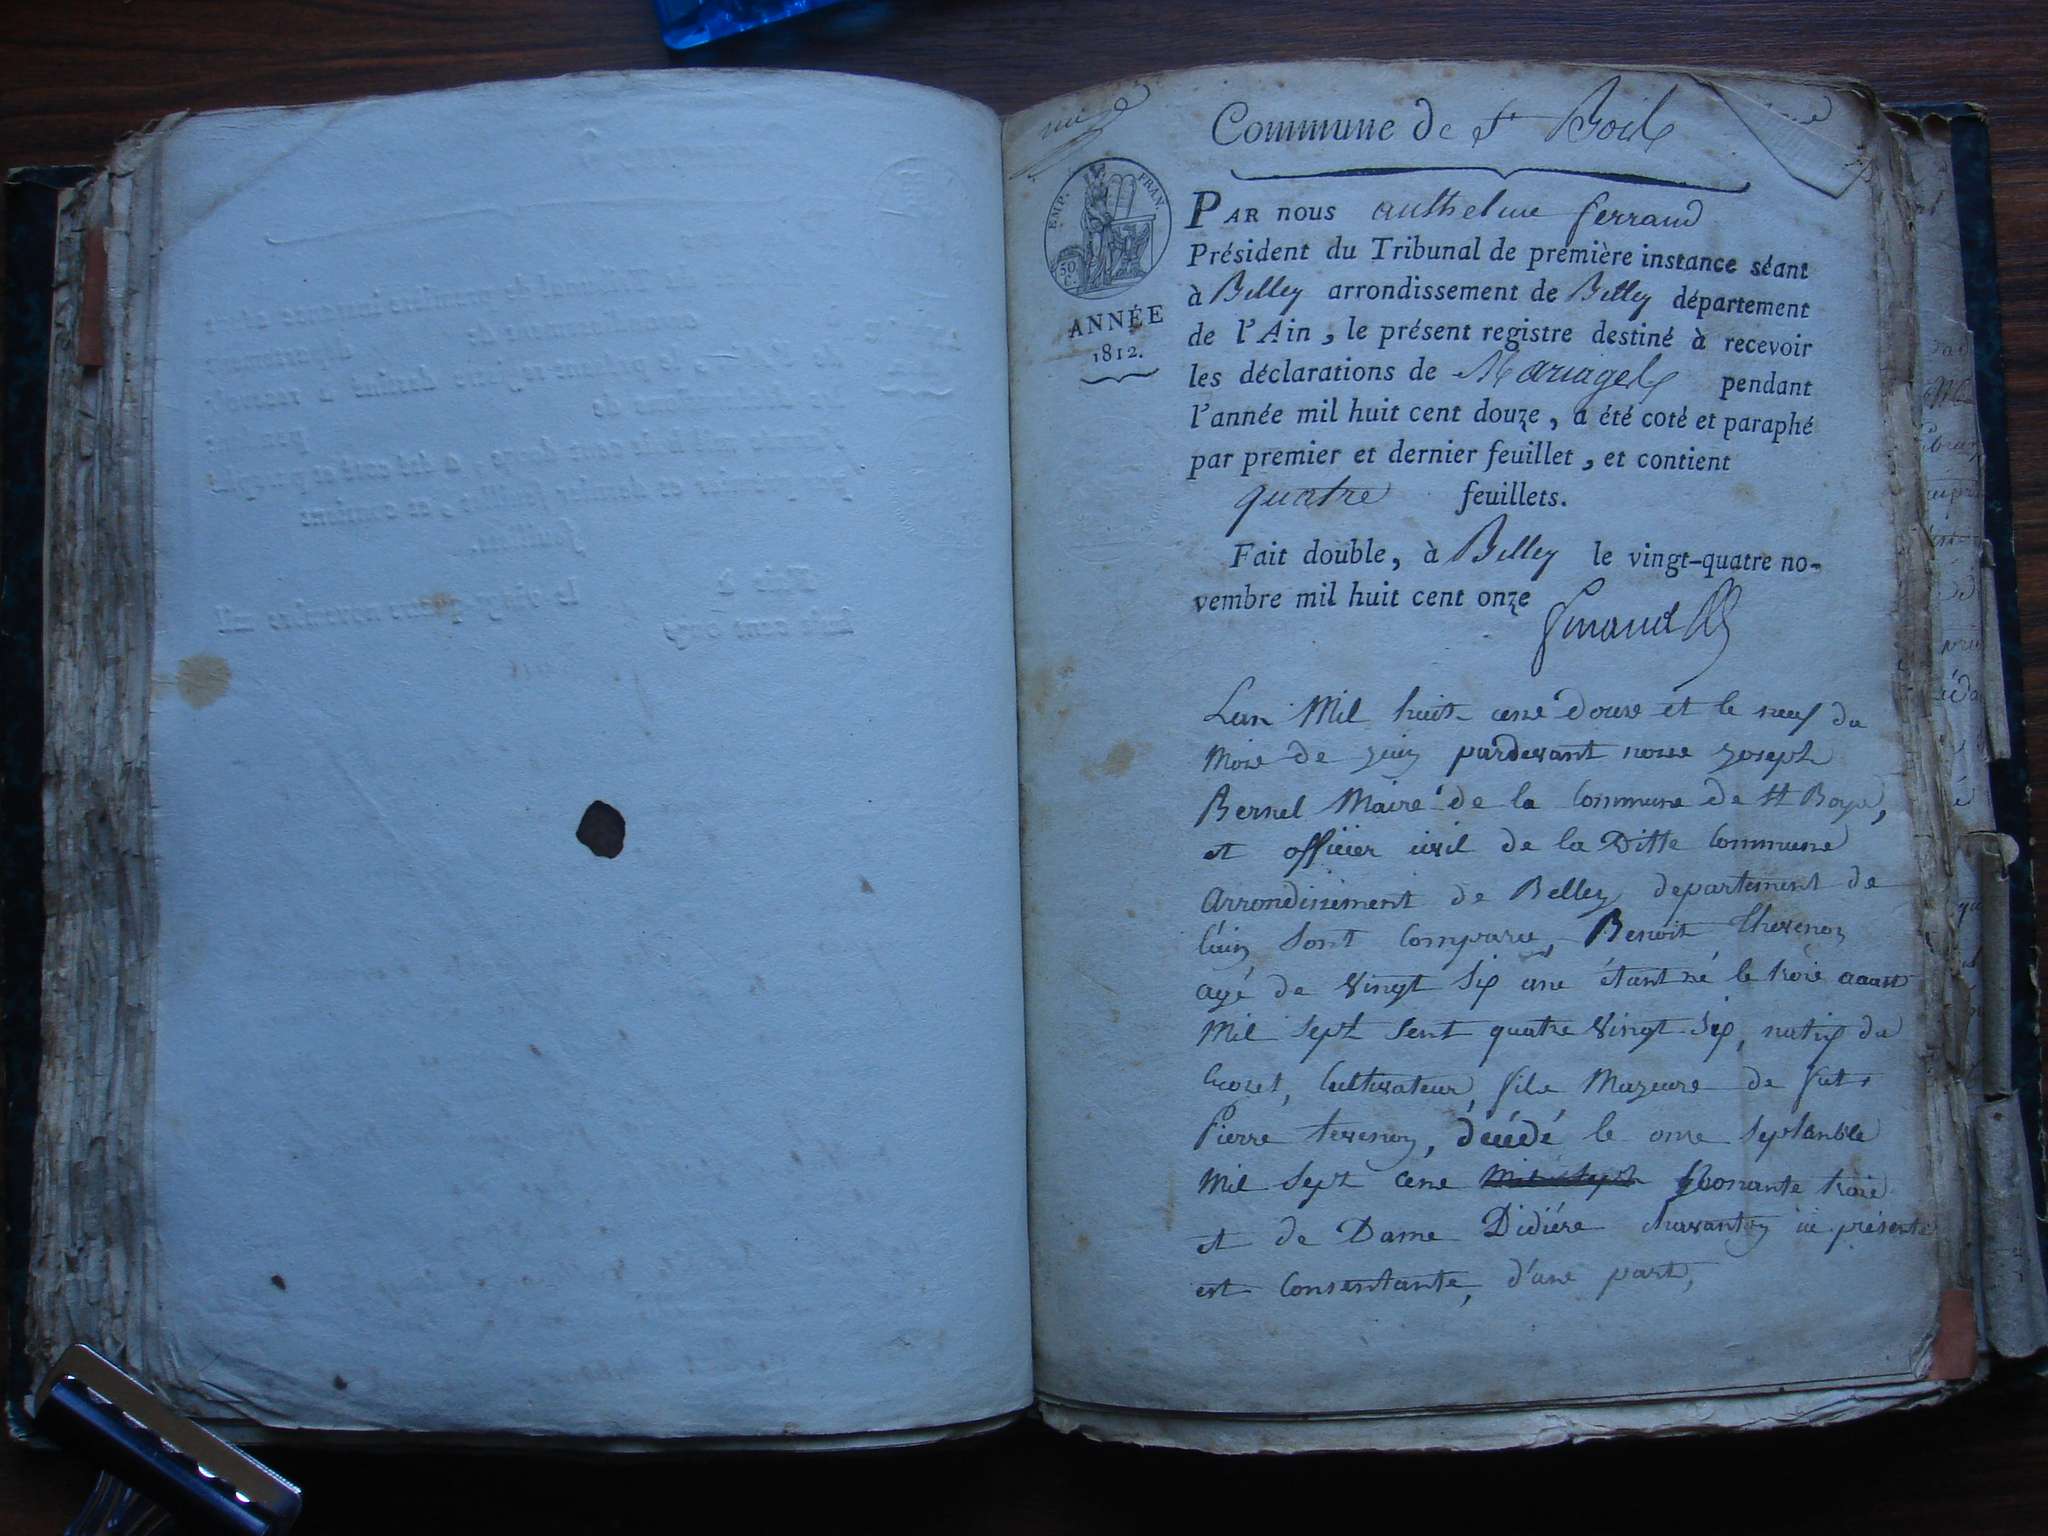 Commune de St Bois
EMP. FRAN.
50 C.
ANNÉE
1812.
PAR NOUS anthelme ferrand
Président du Tribunal de première instance séant
à Belley arrondissement de Belley département
de l'Ain, le présent registre destiné à recevoir
les déclarations de Mariages pendant
l'année mil huit cent douze, a été coté et paraphé
par premier et dernier feuillet, et contient
quatre feuillets.
Fait double, à Belley le vingt-quatre no-
vembre mil huit cent onze
Lan Mil huit cens douse et le neuf du
Mois de juin pardevant nous joseph
Bernel Maire de la Commune de St Boys,
et officier civil de la Ditte Commune
Arrondissement de Belley departement de
l'ain sont comparus, Benoit thevenon
agé de vingt six ans étant né le trois aoust
Mil sept sent quatre vingt six, natif du
Cultivateur, fils Majeure de fut
Pierre tevenon, décédé le onse septanble
Mil sept cens nonante trois
et de Dame Didiére ici présente
est Consentante, d'une part,